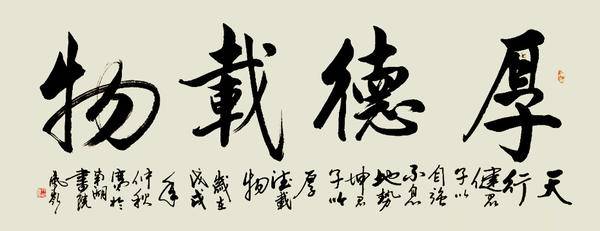 厚德載物
天
行
健君
子以
自強
不息
地勢
坤君
子以
厚
德載
物
歲在
戊戌
年
仲秋
寫於
湖
書院